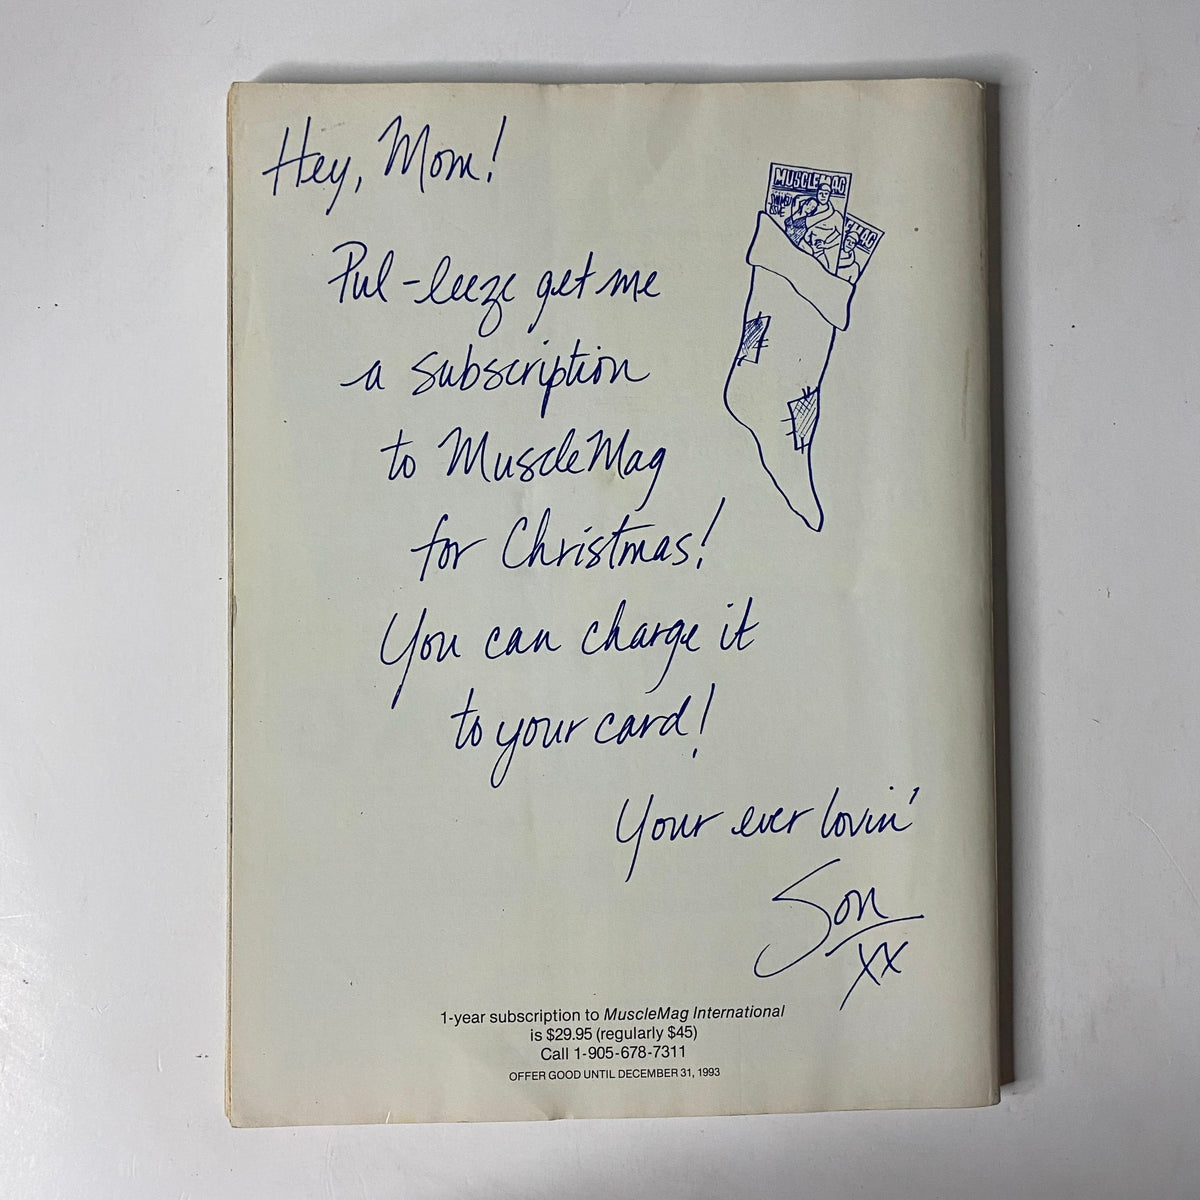 Hey, Mom!
MUSCLEMAG
MAG
Pul-leeze get me
a subscription
to MuscleMag
for Christmas!
You can charge it
to your card!
Your ever lovin'
Son
xx
1-year subscription to MuscleMag International
is $29.95 (regularly $45)
Call 1-905-678-7311
OFFER GOOD UNTIL DECEMBER 31, 1993